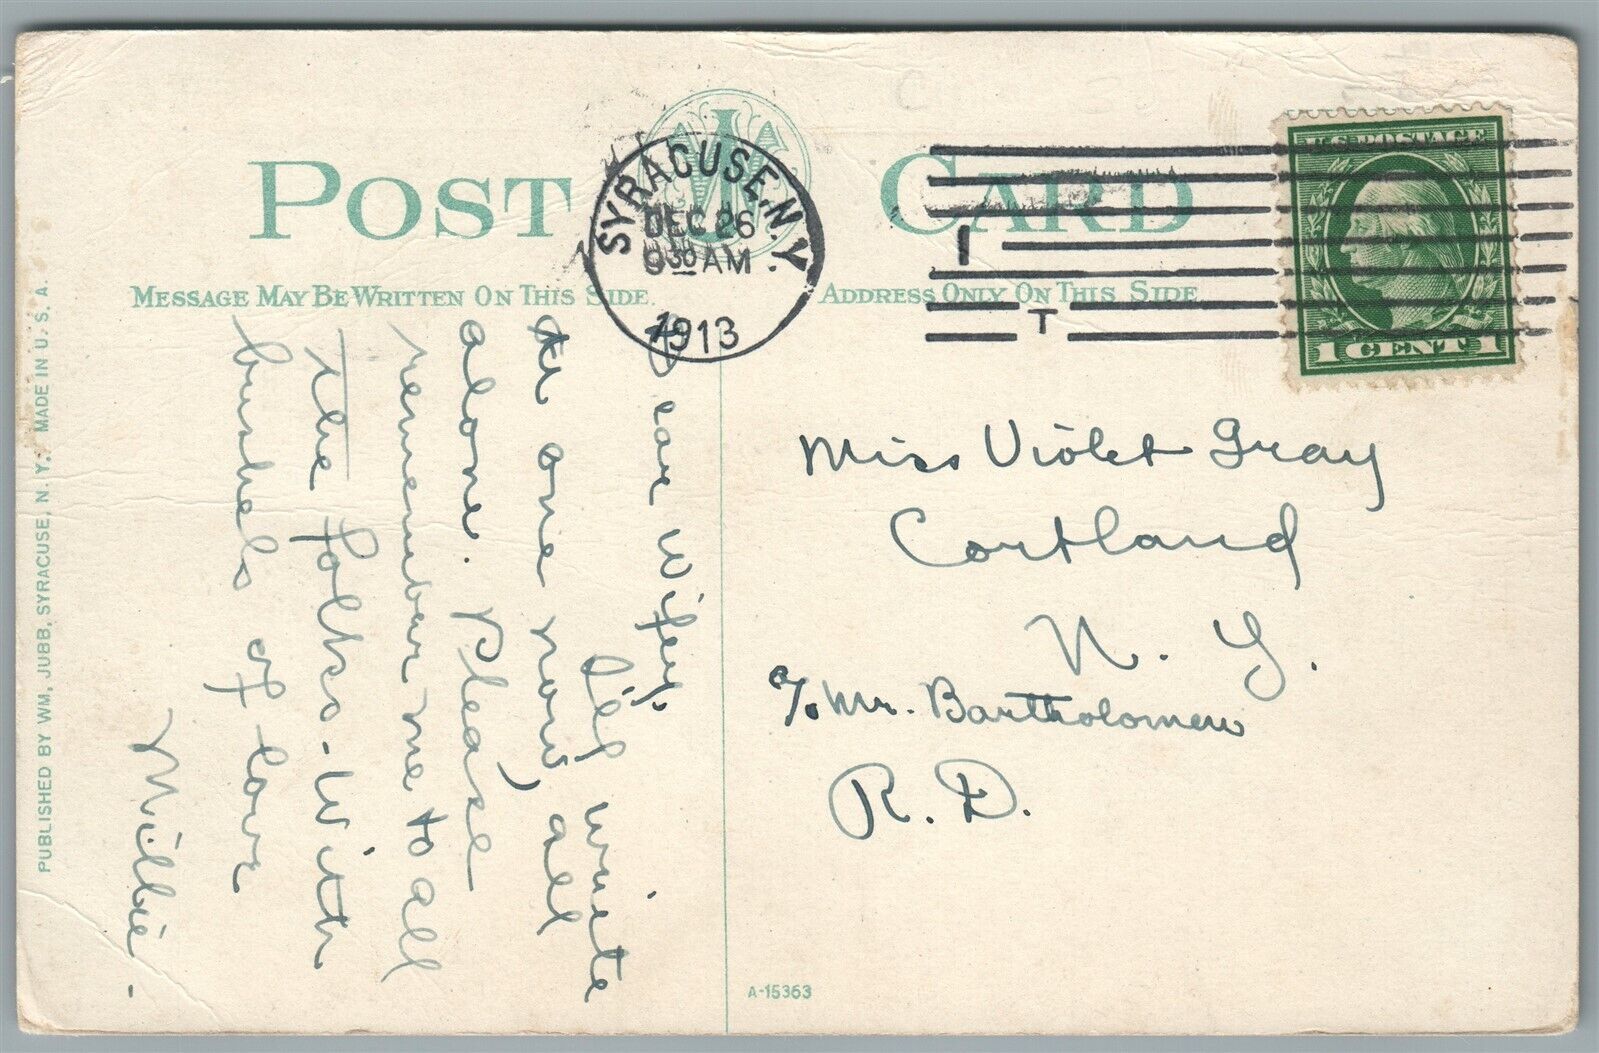 POST CARD
SYRACUSE, N.Y.
DEC 26
9 30 AM
1913
I
T
U.S. POSTAGE
1 CENT 1
MESSAGE MAY BE WRITTEN ON THIS SIDE.
ADDRESS ONLY ON THIS SIDE
Dear Wifey.
I'll write
to one now, all
alone. Please
remember me to all
the folks. With
bushels of love
Millie.
Miss Violet Gray
Cortland
N. Y.
c/o Mr. Bartholomew
R. D.
PUBLISHED BY WM. JUBB, SYRACUSE, N. Y. MADE IN U. S. A.
A-15363